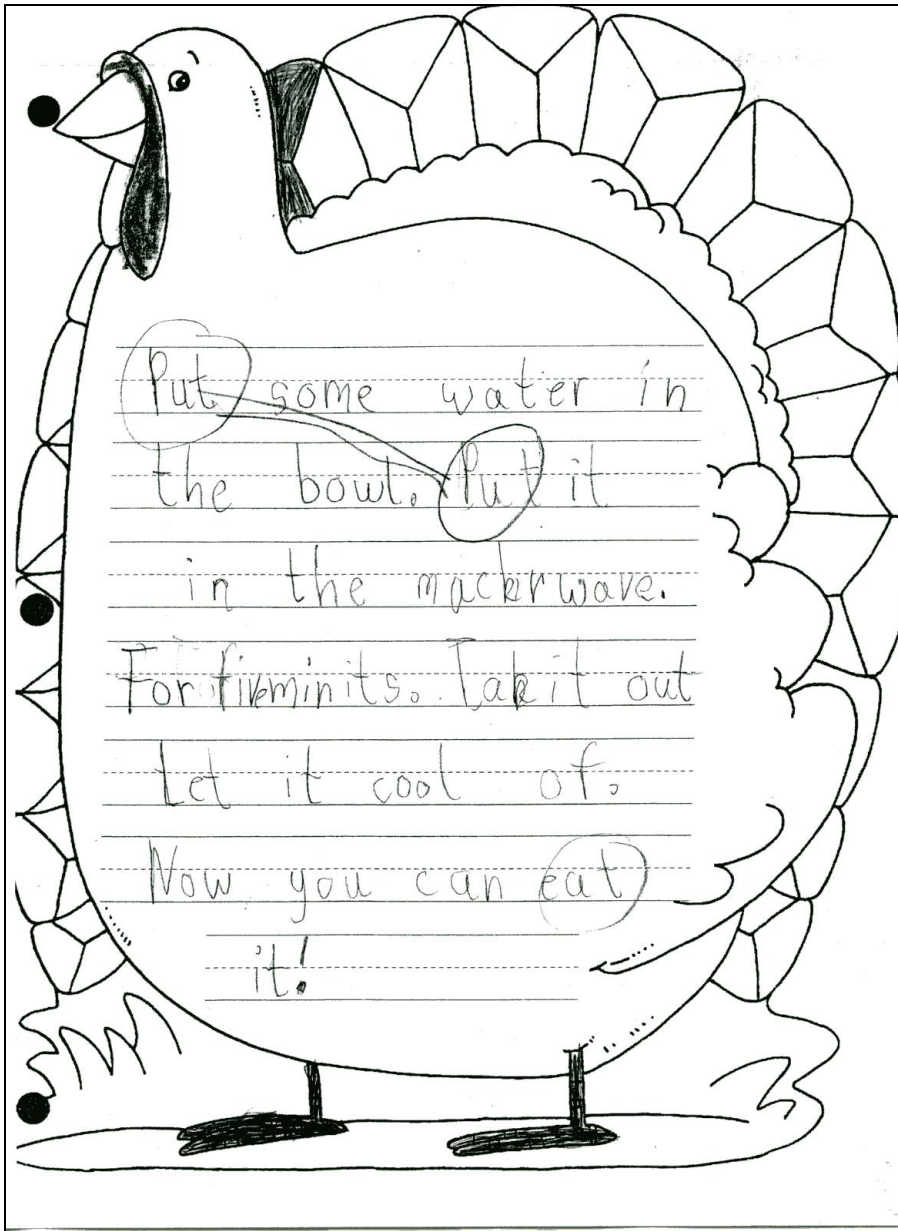 Put some water in
the bowl. Put it
in the mackrwave.
For fiveminits. Takit out
Let it cool of.
Now you can eat
it!